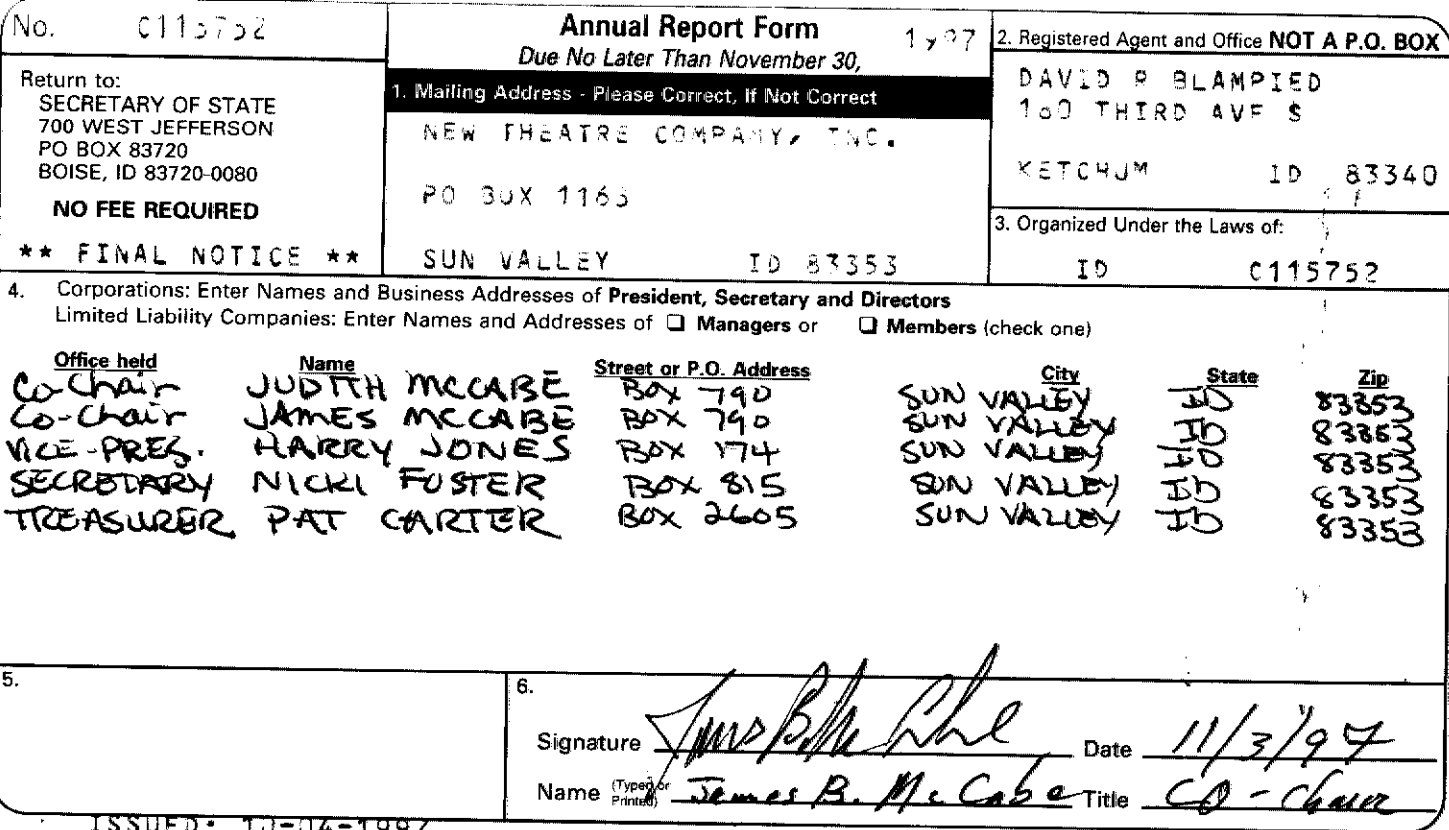 No. C115752
Annual Report Form 1997
Due No Later Than November 30,
Return to:
SECRETARY OF STATE
700 WEST JEFFERSON
PO BOX 83720
BOISE, ID 83720-0080
NO FEE REQUIRED
** FINAL NOTICE **
1. Mailing Address - Please Correct, If Not Correct
NEW THEATRE COMPANY, INC.
PO BOX 1163
SUN VALLEY ID 83353
2. Registered Agent and Office NOT A P.O. BOX
DAVID R BLAMPIED
160 THIRD AVE S
KETCHUM ID 83340
3. Organized Under the Laws of:
ID C115752
4. Corporations: Enter Names and Business Addresses of President, Secretary and Directors
Limited Liability Companies: Enter Names and Addresses of ❑ Managers or ❑ Members (check one)
Office held Name Street or P.O. Address City State Zip
Co-Chair JUDITH MCCABE BOX 790 SUN VALLEY ID 83353
Co-Chair JAMES MCCABE BOX 790 SUN VALLEY ID 83353
VICE-PRES. HARRY JONES BOX 174 SUN VALLEY ID 83353
SECRETARY NICKI FOSTER BOX 815 SUN VALLEY ID 83353
TREASURER PAT CARTER BOX 2605 SUN VALLEY ID 83353
5.
6.
Signature James B. McCabe Date 11/3/97
Name (Typed or Printed) James B. McCabe Title CO-Chair
ISSUED: 10-04-1997